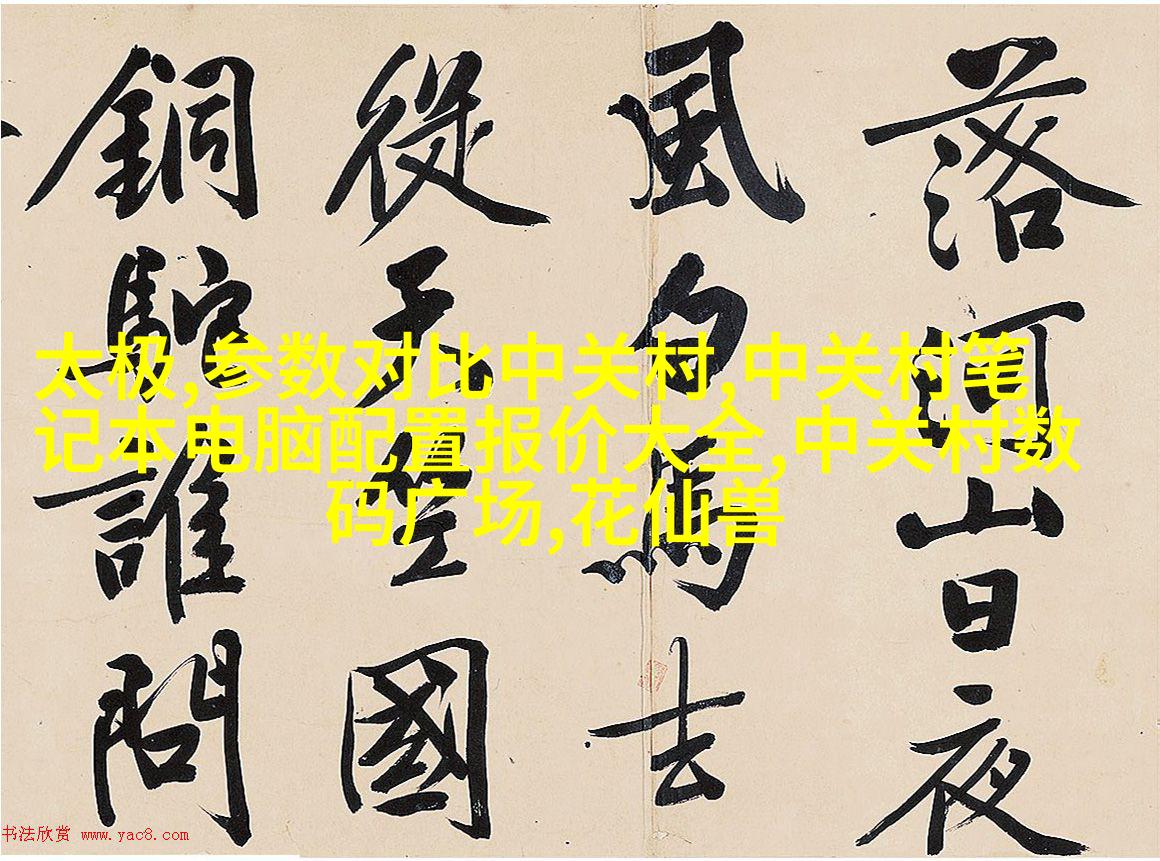 落河山日夜
風白馬去
從國
銅駝誰問
太极,参数对比中关村,中关村笔
记本电脑配置报价大全,中关村数
码广场,花仙兽
书法欣赏 www.yac8.com